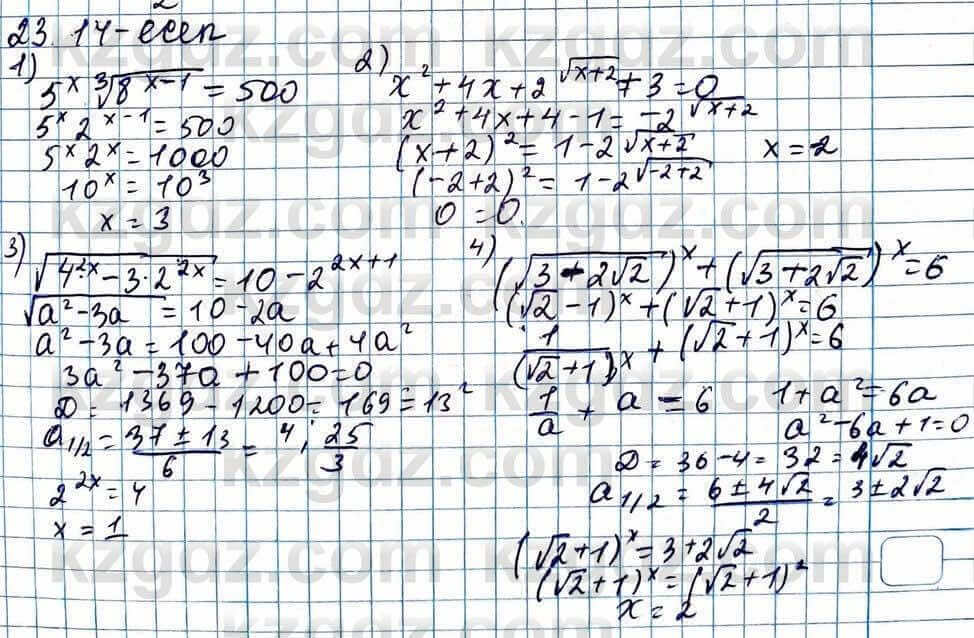 23. 14-есеп
1)
5^x ∛(8^(x-1)) = 500
5^x 2^(x-1) = 500
5^x 2^x = 1000
10^x = 10^3
x = 3
2)
x^2 + 4x + 2^(√(x+2)) + 3 = 0
x^2 + 4x + 4 - 1 = -2^(√(x+2))
(x+2)^2 = 1 - 2^(√(x+2)) x = -2
(-2+2)^2 = 1 - 2^(√(-2+2))
0 = 0.
3)
√(4^(2x) - 3·2^(2x)) = 10 - 2^(2x+1)
√(a^2 - 3a) = 10 - 2a
a^2 - 3a = 100 - 40a + 4a^2
3a^2 - 37a + 100 = 0
D = 1369 - 1200 = 169 = 13^2
a_(1/2) = (37 ± 13)/6 = 4; 25/3
2^(2x) = 4
x = 1
4)
(√(3-2√2))^x + (√(3+2√2))^x = 6
(√2 - 1)^x + (√2 + 1)^x = 6
1/(√2+1)^x + (√2+1)^x = 6
1/a + a = 6 1 + a^2 = 6a
a^2 - 6a + 1 = 0
D = 36 - 4 = 32 = 4√2
a_(1/2) = (6 ± 4√2)/2 = 3 ± 2√2
(√2+1)^x = 3 + 2√2
(√2+1)^x = (√2+1)^2
x = 2
kzgdz.com